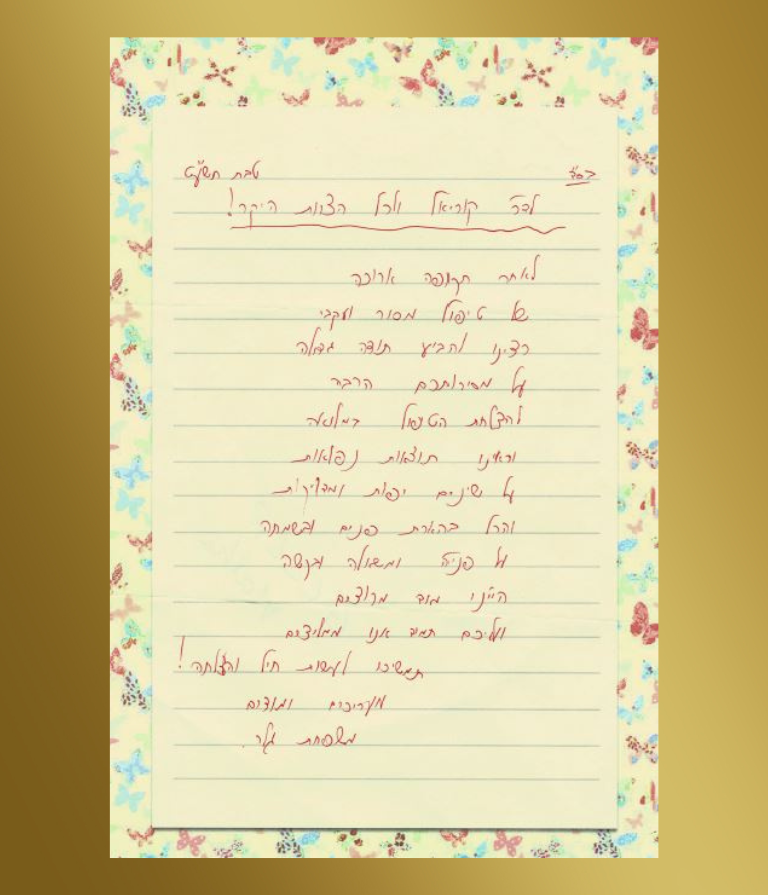 בס"ד טבת תשע"ט
לדר' קוריאל ולכל הצוות היקר!
לאחר תקופה ארוכה
של טיפול מסור ועקבי
רצינו להביע תודה גדולה
על מסירותכם הרבה
להצלחת הטיפול במלואה
וראינו תוצאות נפלאות
על שיניים יפות ומדויקות
והכל בהארת פנים ובשמחה
על כל פניה ומשאלה ובקשה
היינו מאד מרוצים
ועליכם תמיד אנו ממליצים
תמשיכו לעשות חיל והצלחה!
מעריכים ומודים
משפחת